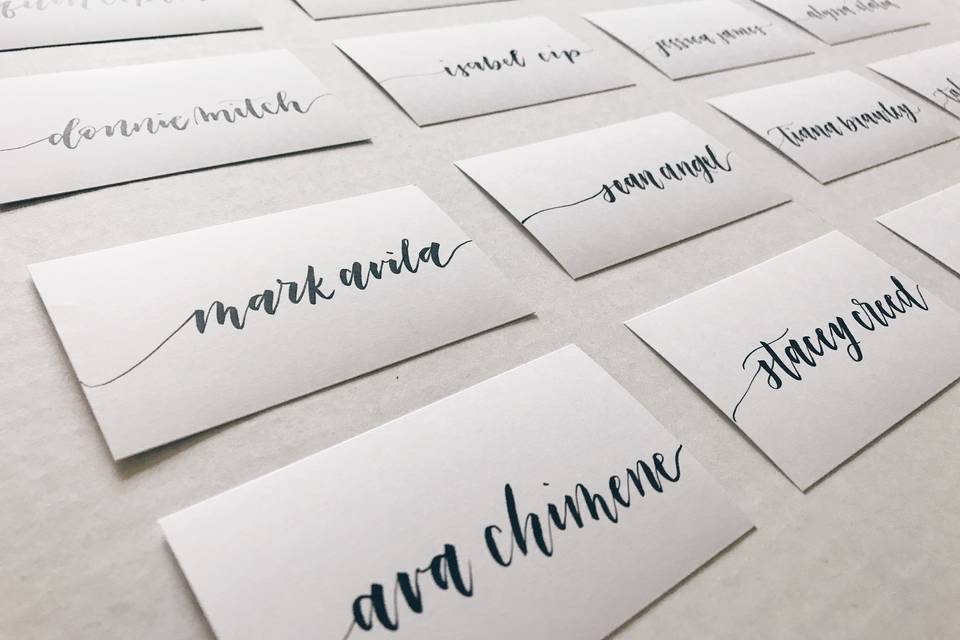 isabel cip
jessica james
donnie mitch
sean angel
tiana brawley
mark avila
stacey creed
ava chimene